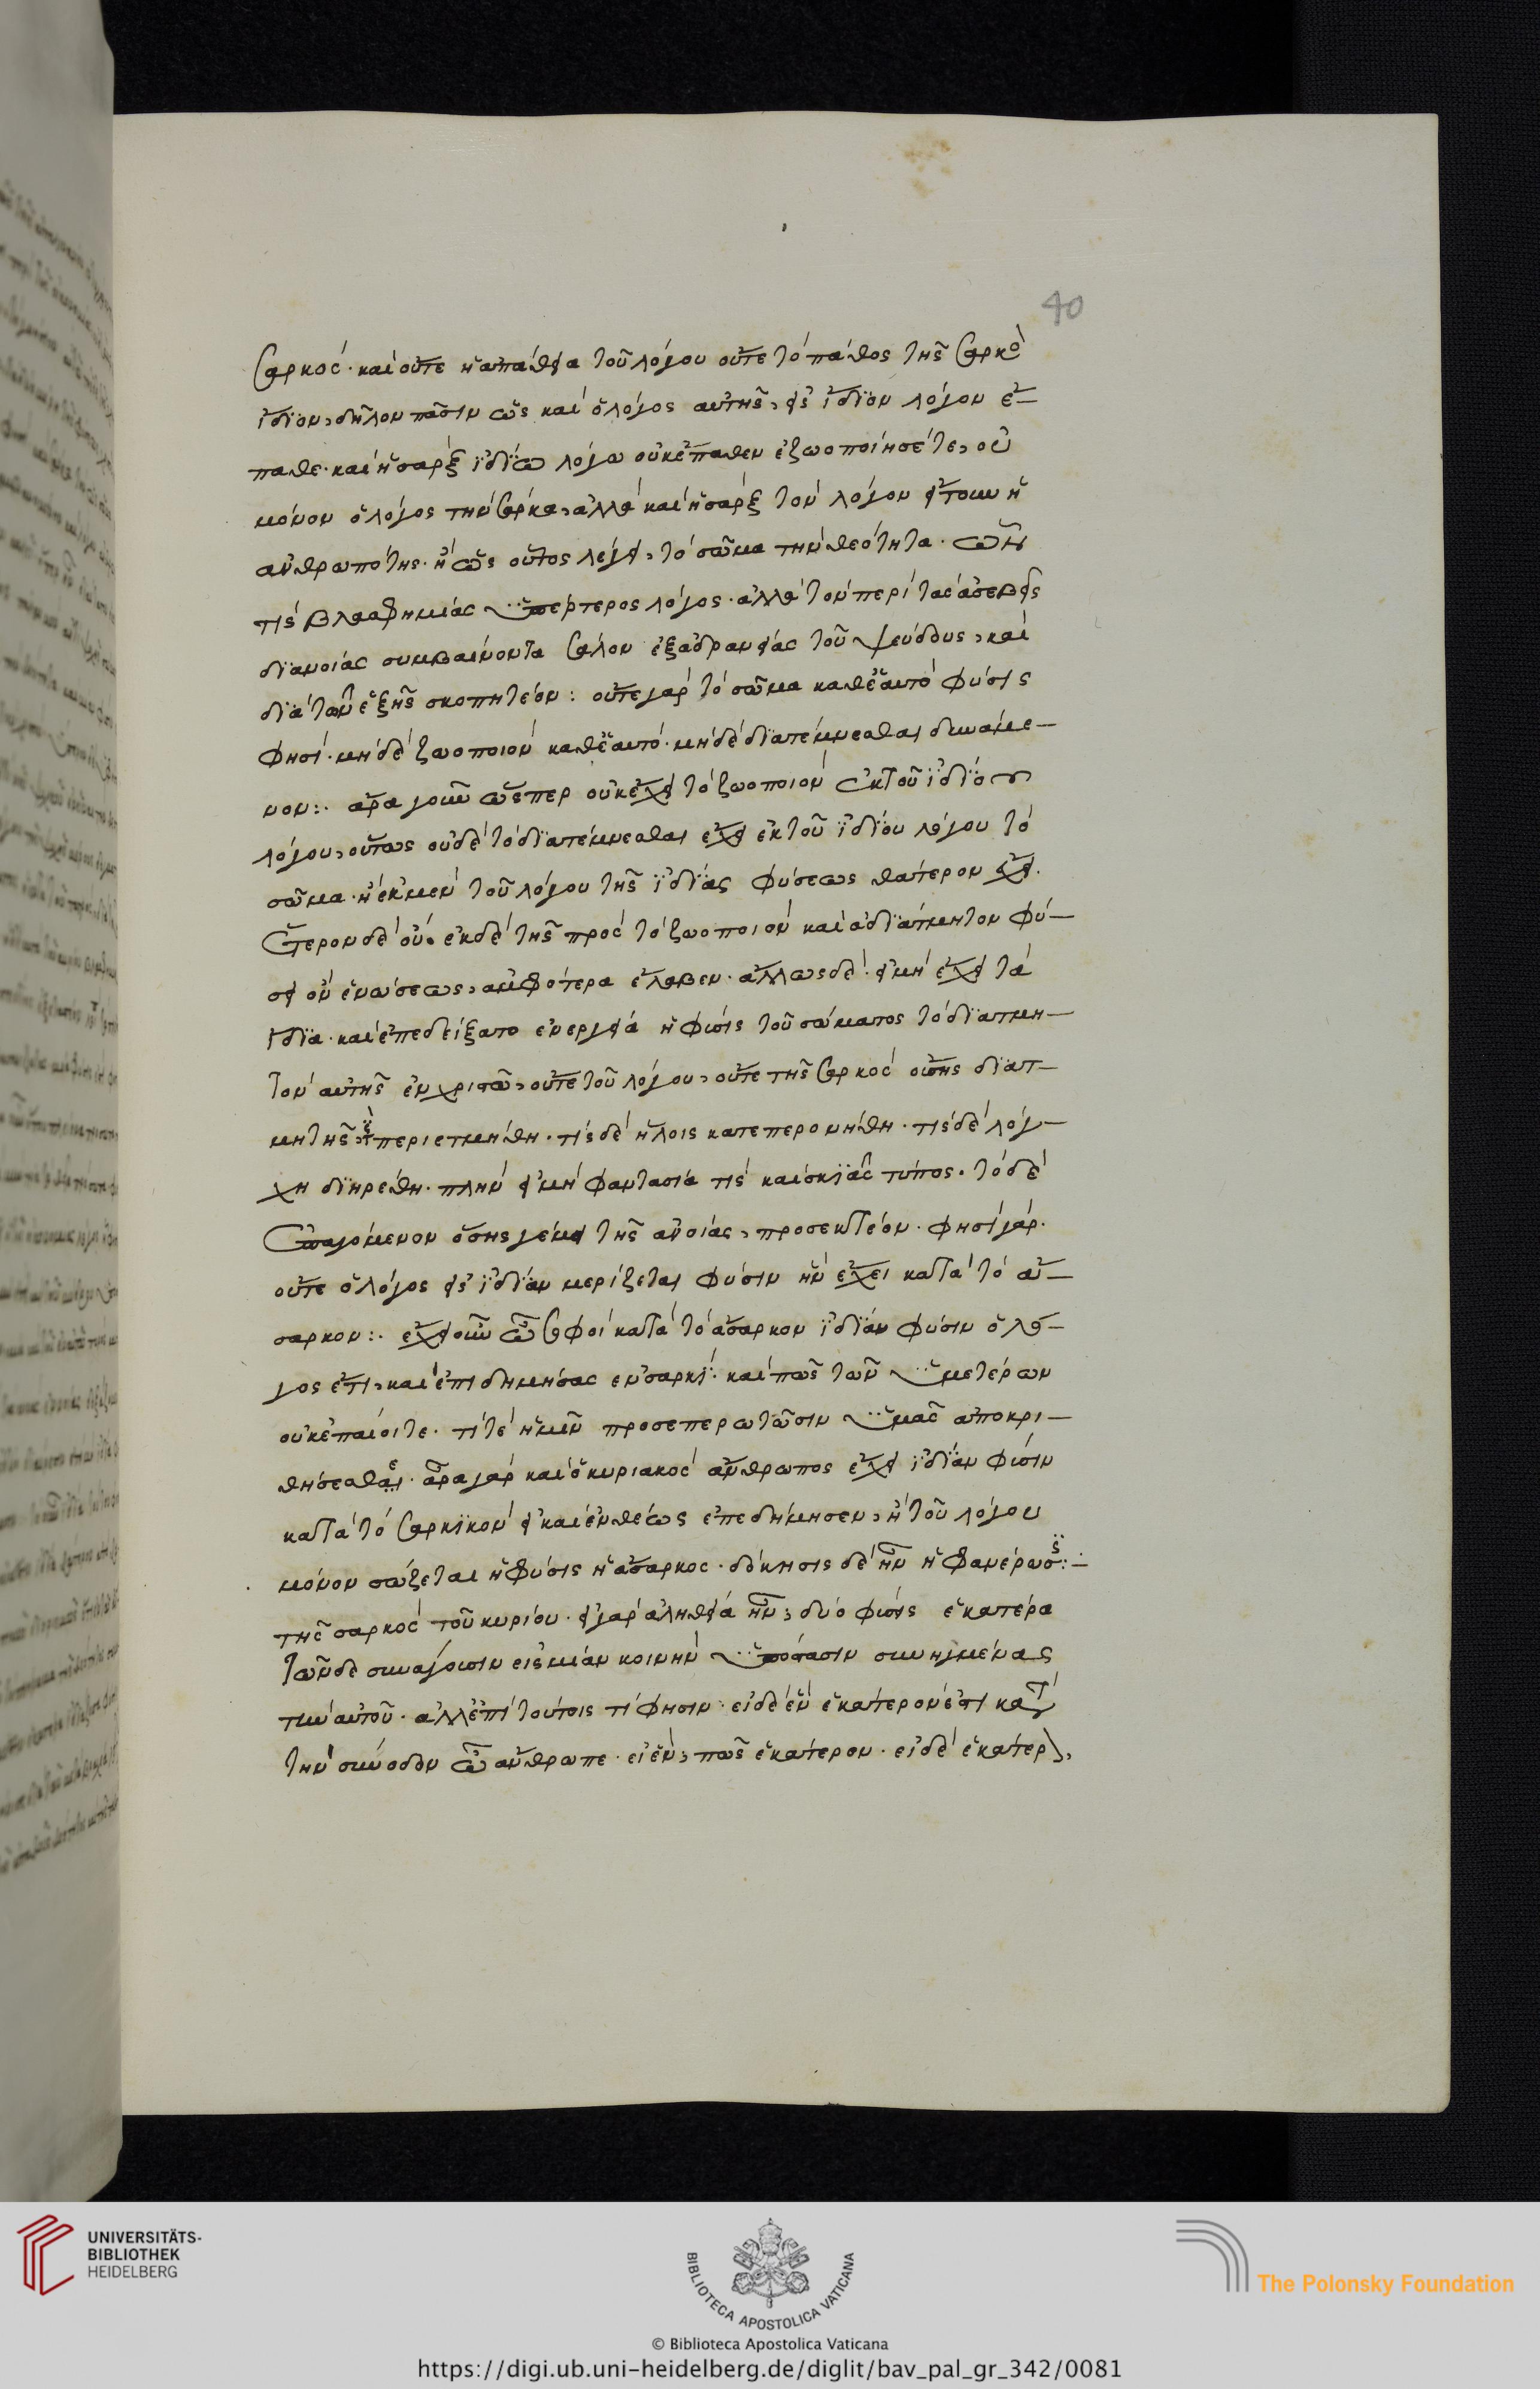 40
σαρκός· καὶ οὔτε ἡ ἀπάθεια τοῦ λόγου οὔτε τὸ πάθος τῆς σαρκὸ
ἴδιον, δῆλον πᾶσιν ὡς καὶ ὁ λόγος αὐτῆς, εἰς ἴδιον λόγον ἔ–
παθε· καὶ ἡ σὰρξ ἰδίω λόγω οὐκ ἔπαθεν ἐζωοποίησέ τε, οὐ
μόνον ὁ λόγος τὴν σάρκα, ἀλλὰ καὶ ἡ σὰρξ τὸν λόγον εἴτουν ἡ
ἀνθρωπότης· ἢ ὡς οὗτος λέγει, τὸ σῶμα τὴν θεότητα·
τίς βλασφημίας ὑπέρτερος λόγος· ἀλλὰ τὸν περὶ τὰς ἀσεβεῖς
διανοίας συμβαίνοντα σάλον ἐξ ἀδρανείας τοῦ ψεύδους, καὶ
διὰ τῶν ἑξῆς σκοπητέον: οὔτε γὰρ τὸ σῶμα καθ' ἑαυτὸ φύσις
φησί· μηδὲ ζωοποιὸν καθ' ἑαυτὸ· μηδὲ διατέμνεσθαι δυνάμε–
νον:· ἆρα γοῦν ὥσπερ οὐκ ἔχει τὸ ζωοποιὸν ἐκ τοῦ ἰδίου
λόγου, οὕτως οὐδὲ τὸ διατέμνεσθαι ἔχει ἐκ τοῦ ἰδίου λόγου τὸ
σῶμα· ἢ ἐκ μὲν τοῦ λόγου τῆς ἰδίας φύσεως θάτερον ἔχει·
ἕτερον δὲ οὔ· ἐκ δὲ τῆς πρὸς τὸ ζωοποιὸν καὶ ἀδιάτμητον φύ–
σει ὂν ἑνώσεως, ἀμφότερα ἔλαβεν· ἄλλως δὲ· εἰ μὴ ἔχει τὰ
ἴδια· καὶ ἐπεδείξατο ἐνεργεία ἡ φύσις τοῦ σώματος τὸ διατμη–
τὸν αὐτῆς ἐν χριστῶ, οὔτε τοῦ λόγου, οὔτε τῆς σαρκὸς οὔσης διατ–
μητῆς περιετμήθη· τίς δὲ ἥλοις κατεπερονήθη· τίς δὲ λόγ–
χη διηρέθη· πλὴν εἰ μὴ φαντασία τίς καὶ σκιᾶς τύπος· τὸ δὲ
ἐπαγόμενον ὅσης γέμει τῆς ἀνοίας, προσεκτέον· φησὶ γάρ·
οὔτε ὁ λόγος εἰς ἰδίαν μερίζεται φύσιν ἣν ἔχει κατὰ τὸ ἄ–
σαρκον:· ἔχει οὖν ὦ σοφοὶ κατὰ τὸ ἄσαρκον ἰδίαν φύσιν ὁ λό–
γος ἔτι, καὶ ἐπιδημήσας ἐν σαρκί· καὶ πῶς τῶν ὑμετέρων
οὐκ ἐπαίοιτε· τί τὲ ἡμῖν προσεπερωτῶσιν ὑμᾶς ἀποκρι–
θήσεσθαι· ἆρα γὰρ καὶ ὁ κυριακὸς ἄνθρωπος ἔχει ἰδίαν φύσιν
κατὰ τὸ σαρκικὸν εἰ καὶ ἐνθέως ἐπεδήμησεν, ἢ τοῦ λόγου
μόνον σώζεται ἡ φύσις ἡ ἄσαρκος· δόκησις δὲ ἦν ἡ φανέρωσις:–
τῆς σαρκὸς τοῦ κυρίου· εἰ γὰρ ἀληθεία ἦν, δύο φύσεις ἑκατέρα
τῶνδε συνάγουσιν εἰς μίαν κοινὴν ὑπόστασιν συνηγμένας
τὴν αὐτοῦ· ἀλλ' ἐπὶ τούτοις τί φησιν· εἰ δὲ ἓν ἑκάτερον ἐστι κατὰ
τὴν σύνοδον ὦ ἄνθρωπε· εἰ ἓν, πῶς ἑκάτερον· εἰ δὲ ἑκάτερον,
UNIVERSITÄTS-
BIBLIOTHEK
HEIDELBERG
BIBLIOTECA APOSTOLICA VATICANA
© Biblioteca Apostolica Vaticana
The Polonsky Foundation
https://digi.ub.uni-heidelberg.de/diglit/bav_pal_gr_342/0081